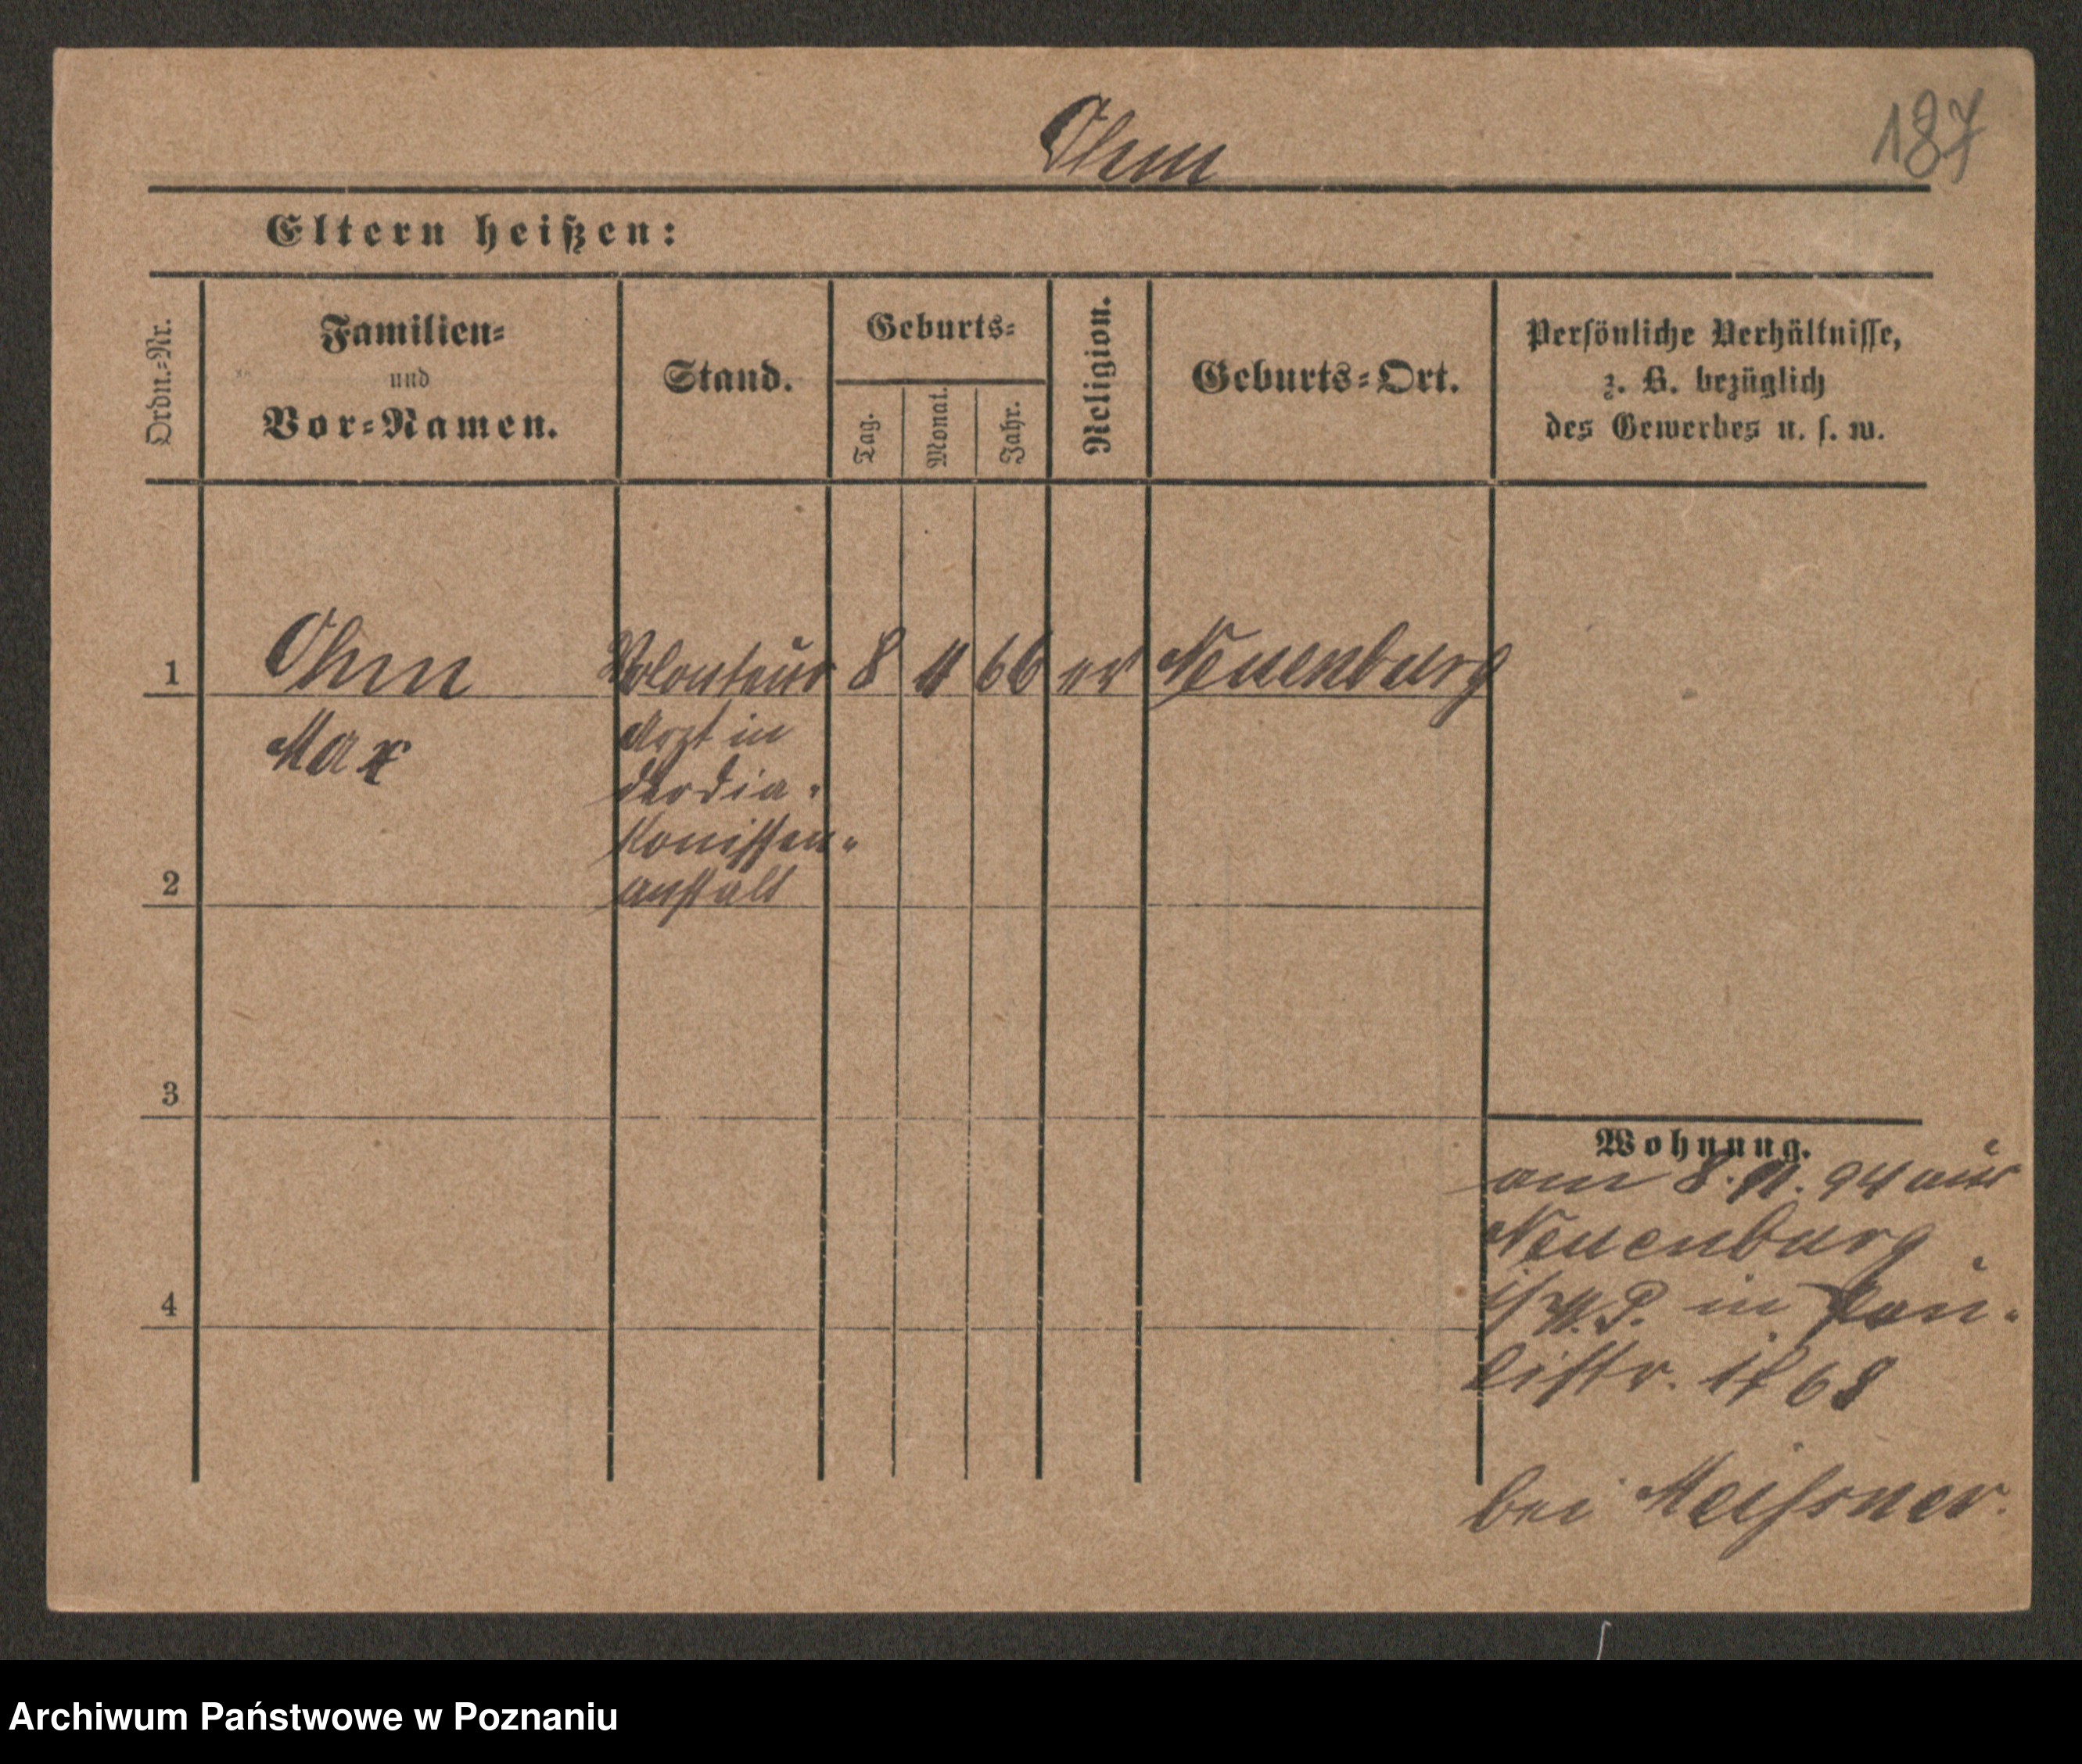 Ohm
187
Eltern heißen:
Ordn.-Nr.
Familien-
und
Vor-Namen.
Stand.
Geburts-
Tag.
Monat.
Jahr.
Religion.
Geburts-Ort.
Persönliche Verhältnisse,
z. B. bezüglich
des Gewerbes u. s. w.
1 Ohm Volonteur 8 4 66 ev Neuenburg
Max Arzt in
der Dia-
konissen-
anstalt
2
3
4
Wohnung.
am 8. 11. 94 aus
Neuenburg
W.P. in
listr. 68
bei Meissner.
Archiwum Państwowe w Poznaniu